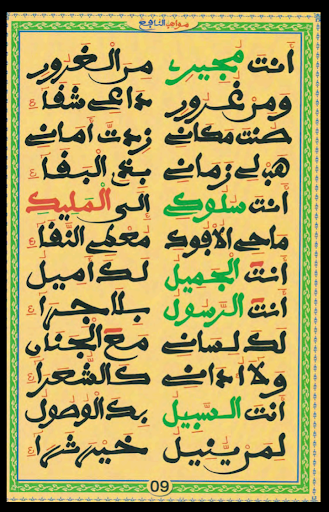 مواهب النافع
أنت مجير من الغرور
ومن غرور داعي شفا
صنت مكاني زدت أماني
هب لي زماني البقا
أنت سلوكي إلى المليك
ماحي الأفوك معطي النقا
أنت الجميل لك أميل
أنت الرسول بلا
لك لساني مع الجنان
ولا أداني كالشعرا
أنت السبيل بك الوصول
لمن ينيل خير شرا
09